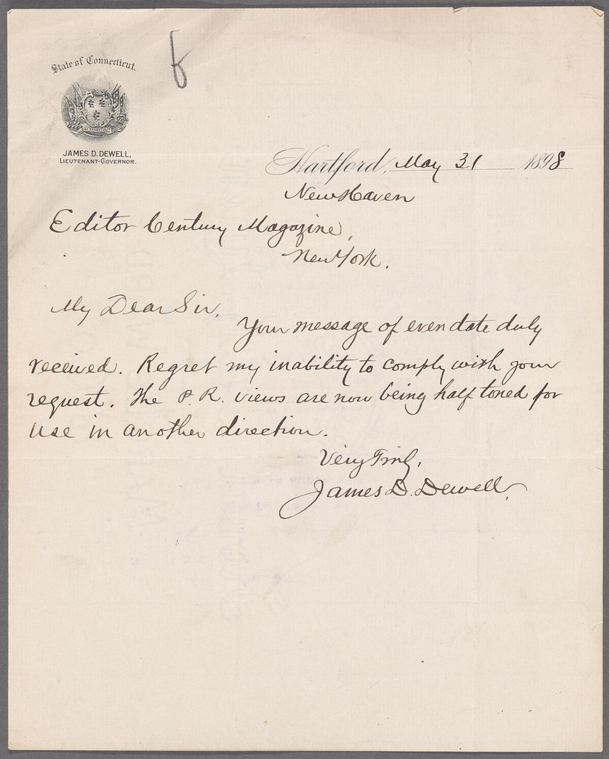 f
State of Connecticut.
JAMES D. DEWELL,
LIEUTENANT-GOVERNOR.
Hartford, May 31 1898
New Haven
Editor Century Magazine,
New York.
My Dear Sir,
Your message of even date duly
received. Regret my inability to comply with your
request. The P. R. views are now being half toned for
use in another direction.
Very Truly,
James D. Dewell,